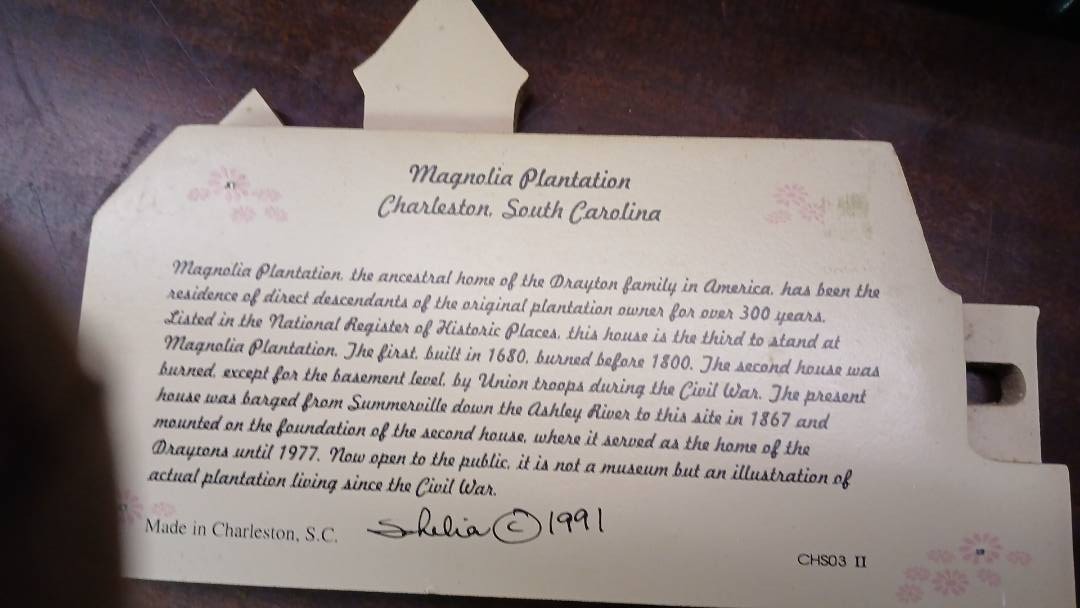 Magnolia Plantation
Charleston, South Carolina
Magnolia Plantation, the ancestral home of the Drayton family in America, has been the
residence of direct descendants of the original plantation owner for over 300 years.
Listed in the National Register of Historic Places, this house is the third to stand at
Magnolia Plantation. The first, built in 1680, burned before 1800. The second house was
burned, except for the basement level, by Union troops during the Civil War. The present
house was barged from Summerville down the Ashley River to this site in 1867 and
mounted on the foundation of the second house, where it served as the home of the
Draytons until 1977. Now open to the public, it is not a museum but an illustration of
actual plantation living since the Civil War.
Made in Charleston, S.C. Shelia © 1991
CHS03 II